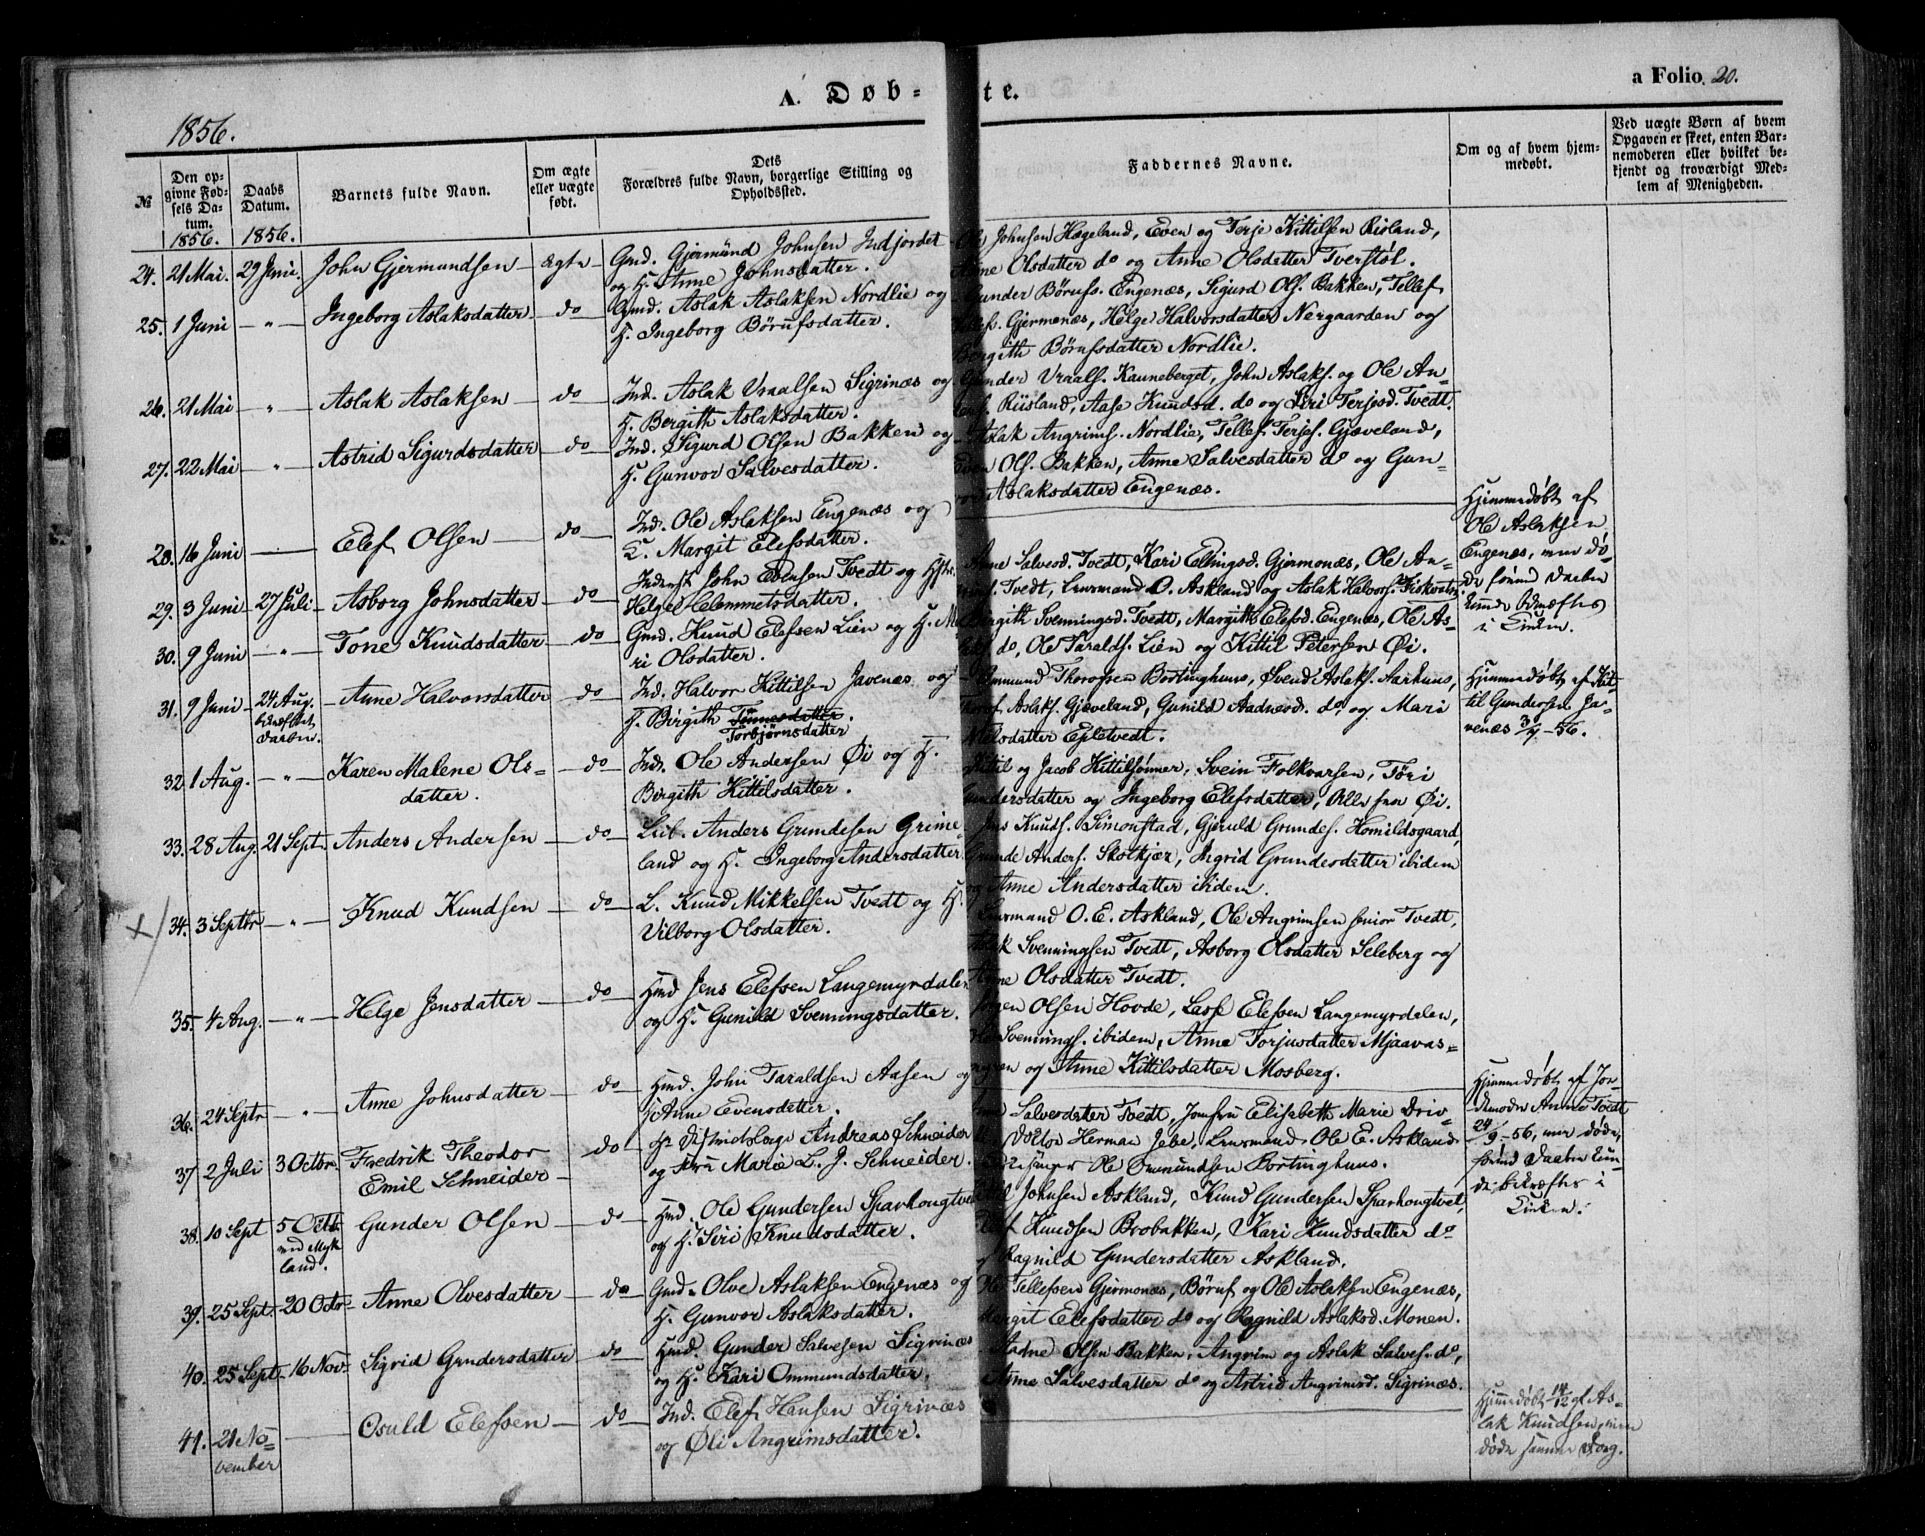 A. Døb-te.
a Folio 20.
1856.
№
Den opgivne Fødsels Datum.
1856.
Daabs Datum.
1856.
Barnets fulde Navn.
Om ægte eller uægte født.
Dets Forældres fulde Navn, borgerlige Stilling og Opholdssted.
Faddernes Navne.
Om og af hvem hjemmedøbt.
Ved uægte Børn af hvem Opgaven er skeet, enten Barnemoderen eller hvilket bekjendt og troværdigt Medlem af Menigheden.
24. 21 Mai. 29 Juni. John Gjermundsen ægte Gmd. Gjermund Johnsen Indjordet
og H. Anne Johnsdatter.
Ole Johnsen Hageland, Even og Terje Kittilsen Risland,
Anne Olsdatter do og Anne Olsdatter Tverstøl.
25. 1 Juni - " - Ingeborg Aslaksdatter do Gmd. Aslak Aslaksen Nordlie og
H. Ingeborg Børufsdatter.
Gunder Børufs. Engenæs, Sigurd Ols. Bakken, Tellef
Gjermenæs, Helge Halvorsdatter Nergaarden og
Bergith Børufsdatter Nordlie.
26. 21 Mai - " - Aslak Aslaksen do Ind. Aslak Vraalsen Sigrinæs og
H. Bergith Aslaksdatter.
Gunder Vraals. Kauneberget, John Aslaks. og Ole An-
Riisland, Aase Knudsd. do og Siri Terjesd. Tvedt.
27. 22 Mai - " - Astrid Sigurdsdatter do Ind. Sigurd Olsen Bakken og
H. Gunvor Salvesdatter.
Aslak Angrims. Nordlie, Tellef Terjes. Gjæveland,
Even Ols. Bakken, Anne Salvesdatter do og Gun-
Aslaksdatter Engenæs.
28. 16 Juni Elef Olsen do Ind. Ole Aslaksen Engenæs og
K. Margit Elefsdatter.
Hjemmedøbt af
Ole Aslaksen
Engenæs, men dø-
de førend Daaben
kunde bekræftes
i Kirken.
29. 3 Juni 27 Juli Asborg Johnsdatter do Inderst John Evensen Tvedt og
Helge Clemmetsdatter.
Anne Salvesd. Tvedt, Kari Ellingsd. Gjermonæs, Ole An-
Tvedt, Lensmand O. Askland og Aslak Halvors. Fiskvatn
30. 9 Juni - " - Tone Knudsdatter do Gmd. Knud Elefsen Lien og H. Ma-
ri Olsdatter.
Birgith Svenningsd. Tvedt, Margith Elefsd. Engenæs, Ole As-
do, Ole Taralds. Lien og Kittil Petersen Øi.
31. 9 Juni 24 Aug. bekræftet Daaben. Anne Halvorsdatter do Ind. Halvor Kittilsen Javenæs og
H. Birgith Tønnesdatter.
Torbjørnsdatter
Ommund Thorofsen Bortinghuus, Svend Aslaks. Aarhuus,
Aslaks. Gjæveland, Gunild Aadnesd. do og Mari
Nilsdatter Epletvedt.
Hjemmedøbt af Kit-
til Gundersen Ja-
venæs 3/7-56.
32. 1 Aug. - " - Karen Malene Ols-
datter. do Ind. Ole Andersen Øi og H.
Birgith Kittilsdatter.
Kittil og Jacob Kittilsønner, Svein Folkvarsen, Tøri
Gundersdatter og Ingeborg Elefsdatter, Alle fra Øi.
33. 28 Aug. 21 Sept. Anders Andersen do Leil. Anders Grundesen Grime-
land og H. Ingeborg Andersdatter
Jens Knuds. Simonstad, Gjeruld Grundes. Homildsgaard,
Grunde Anders. Skolkjær, Ingrid Grundesdatter ibidem
og Anne Andersdatter ibidem.
X/
34. 3 Septbr - " - Knud Knudsen do L. Knud Mikkelsen Tvedt og H.
Vilborg Olsdatter.
Lensmand O. E. Askland, Ole Angrimsen junior Tvedt,
Aslak Svenningsen Tvedt, Asborg Olsdatter Seleberg og
Anne Olsdatter Tvedt.
35. 4 Aug. - " - Helge Jensdatter do Hmd Jens Elefsen Langemyrdalen
og H. Gunild Svenningsdatter.
Jørgen Olsen Hovde, Lars Elefsen Langemyrdalen,
Ole Svennings. ibidem, Anne Torjusdatter Mjaavas-
og Anne Kittilsdatter Mosberg.
36. 24 Septr - " - Anne Johnsdatter do Hmd. John Taraldsen Aasen og
H. Anne Evensdatter.
Hjemmedøbt af Jor-
demoder Anne Tvedt
24/9-56, men døde,
førend Daaben kun-
de bekræftes i
Kirken.
37. 2 Juli 3 Octbr. Fredrik Theodor
Emil Schneider do Hr. Districtslæge Andreas Schneider
og Fru Marie L. J. Schneider.
Anne Salvesdatter Tvedt, Jomfru Elisabeth Marie Driv
Doctor Herman Jebe, Lensmand Ole E. Askland
Kirkesanger Ole Ommundsen Bortinghuus.
38. 10 Sept 5 Octb. ved Mykland. Gunder Olsen do Hmd. Ole Gundersen Sparhongtvet
og H. Siri Knudsdatter.
Johnsen Askland, Knud Gundersen Sparhongtvet,
Knudsen Brobakken, Kari Knudsdatter do
og Ragnild Gundersdatter Askland.
39. 25 Sept. 20 Octr. Anne Olvesdatter do Gmd. Olve Aslaksen Engenæs og
H. Gunvor Aslaksdatter.
Ole Tellefsen Gjermonæs, Børuf og Ole Aslaksen Engenæs,
Margit Elefsdatter do og Ragnild Aslaksd. Monen.
40. 25 Sept. 16 Nov. Sigrid Gundersdatter do Hmd. Gunder Salvesen Sigrinæs
og H. Kari Ommundsdatter.
Aadne Olsen Bakken, Angrim og Aslak Salves. do,
Anne Salvesdatter do og Astrid Angrimsd. Sigrinæs.
41. 21 No-
vember Osuld Elefsen do Ind. Elef Hansen Sigrinæs
og Øli Angrimsdatter.
Hjemmedøbt 14/12 af As-
lak Knudsen, men
døde samme Dag.